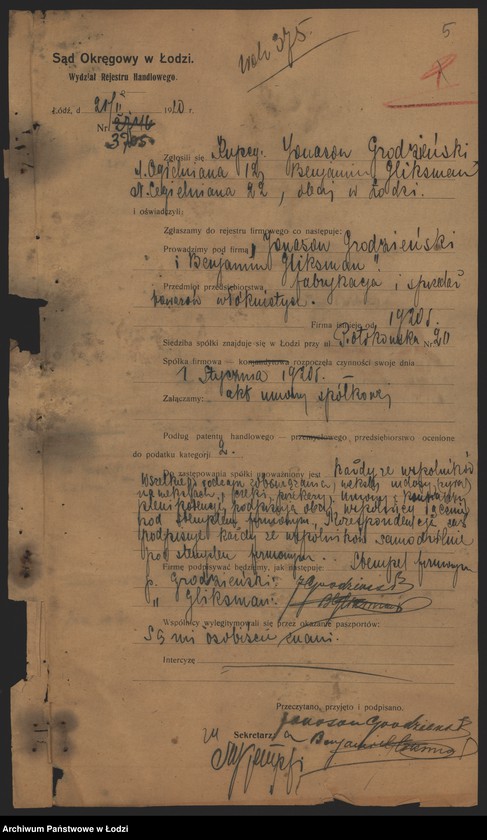 5
Sąd Okręgowy w Łodzi.
Wydział Rejestru Handlowego.
Łódź, d. 20/II 1920 r.
Nr.
3705
Zgłosili się Kupcy: Jonason Grodzieński
12, Benjamin Gliksman
N. Cegielniana 22, obaj w Łodzi.
i oświadczyli:
Zgłaszamy do rejestru firmowego co następuje:
Prowadzimy pod firmą „Jonason Grodzieński
i Benjamin Gliksman".
Przedmiot przedsiębiorstwa fabrykacja i sprzedaż
towarów włóknistych.
Firma istnieje od 1920 r.
Siedziba spółki znajduje się w Łodzi przy ul. Piotrkowska Nr. 20
Spółka firmowa — komandytowa rozpoczęła czynności swoje dnia
1 Stycznia 1920 r.
Załączamy: akt umowy spółkowej
Podług patentu handlowego — przemysłowego przedsiębiorstwo ocenione
do podatku kategorji 2.
Do zastępowania spółki upoważniony jest każdy ze wspólników
Wszelkiego rodzaju zobowiązania, weksle,
na wekslach, czeki, przekazy, umowy i
plenipotencje podpisują obaj wspólnicy łącznie
pod stemplem firmowym, Korespondencję zaś
podpisuje każdy ze wspólników samodzielnie
pod stemplem firmowym.
Firmę podpisywać będziemy, jak następuje: Stempel firmowy
p. Grodzieński:
„ Gliksman:
Wspólnicy wylegitymowali się przez okazanie paszportów:
Są mi osobiście znani.
Intercyzę
Przeczytano, przyjęto i podpisano.
Jonason Grodzieński
Sekretarz
Benjamin Gliksman
Archiwum Państwowe w Łodzi